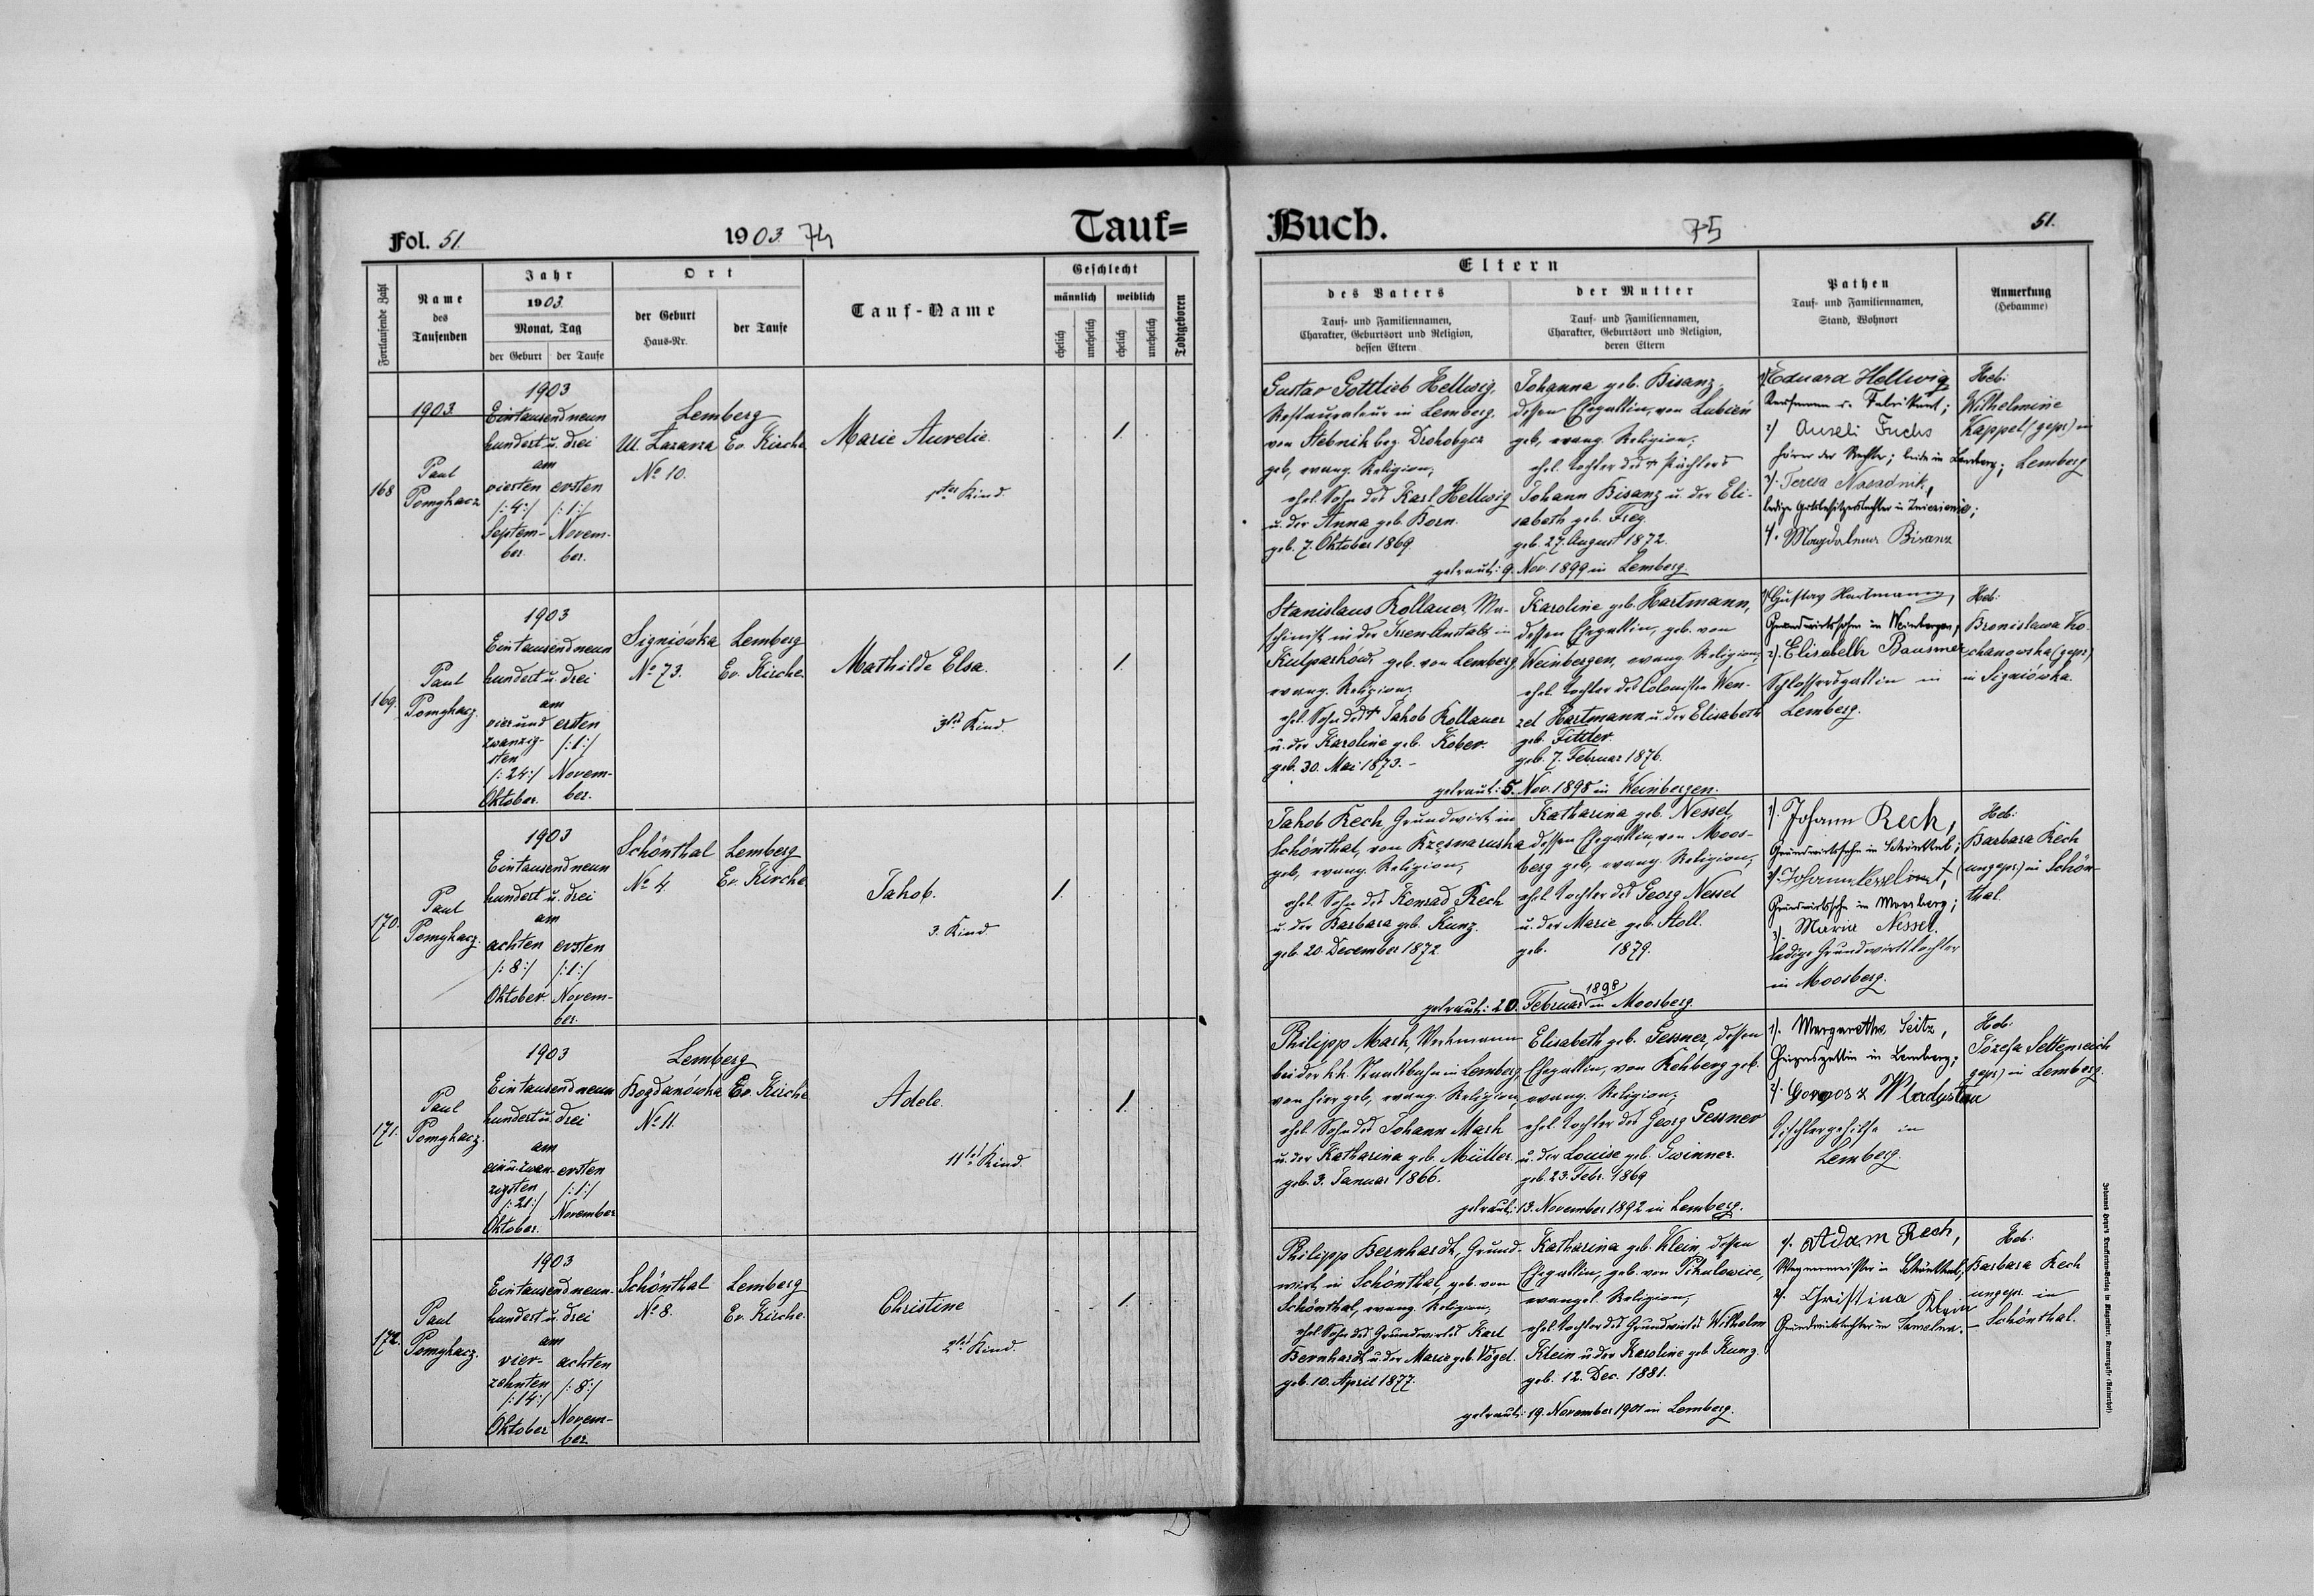 Fol. 51.
1903 74
Tauf=
Fortlaufende Zahl
Name
des
Taufenden
Jahr
1903.
Monat, Tag
der Geburt
der Taufe
Ort
der Geburt
Haus-Nr.
der Taufe
Tauf-Name
Geschlecht
männlich
weiblich
ehelich
unehelich
ehelich
unehelich
Todtgeboren
1903.
168
Paul
Pomykacz
1903
Eintausendneun
hundert u. drei
am
vierten
/: 4 :/
Septem-
ber.
ersten
/: 1 :/
Novem-
ber.
Lemberg
Ul. Lazarza
No 10.
Ev. Kirche
Marie Aurelie.
1tes Kind.
1.
169.
Paul
Pomykacz.
1903
Eintausendneun
hundert u. drei
am
vierund
zwanzig-
sten
/: 24 :/
Oktober.
ersten
/: 1 :/
Novem-
ber.
Signiówka
No 73.
Lemberg
Ev. Kirche.
Mathilde Elsa.
3tes Kind.
1.
170.
Paul
Pomykacz.
1903
Eintausendneun
hundert u. drei
am
achten
/: 8 :/
Oktober.
ersten
/: 1 :/
Novem-
ber.
Schönthal
No 4.
Lemberg
Ev. Kirche
Jakob.
3. Kind.
1.
171.
Paul
Pomykacz.
1903
Eintausendneun
hundert u. drei
am
ein u. zwan-
zigsten
/: 21 :/
Oktober.
ersten
/: 1 :/
November
Lemberg
Bogdanówka
No 11.
Ev. Kirche
Adele.
11tes Kind.
1.
172.
Paul
Pomykacz.
1903
Eintausendneun-
hundert u. drei
am
vier-
zehnten
/: 14 :/
Oktober
achten
/: 8 :/
Novem-
ber
Schönthal
No 8.
Lemberg
Ev. Kirche.
Christine
2tes Kind.
1.
Buch.
75
51.
Eltern
des Vaters
Tauf- und Familiennamen,
Charakter, Geburtsort und Religion,
dessen Eltern
der Mutter
Tauf- und Familiennamen,
Charakter, Geburtsort und Religion,
deren Eltern
Pathen
Tauf- und Familiennamen,
Stand, Wohnort
Anmerkung
(Hebamme)
Gustav Gottlieb Hellwig,
Restaurateur in Lemberg,
von Stebnik bez. Drohobycz
geb, evang. Religion;
ehel. Sohn des Karl Hellwig
u. der Anna geb. Born.
geb. 7. Oktober 1869.
Johanna geb. Bisanz,
dessen Ehegattin, von Lubień
geb, evang. Religion;
ehel. Tochter des † Pächters
Johann Bisanz u. der Eli-
sabeth geb. Frey.
geb. 27. August 1872.
getraut: 9. Nov. 1899 in Lemberg.
1) Eduard Hellwig
Kaufmann u. Fabrikant;
2) Fuchs
Hörer der Rechte; beide in Lemberg;
3). Teresa
4). Magdalena Bisanz
Heb:
Wilhelmine
Kappel (gepr.) in
Lemberg
Stanislaus Kollauer, Ma-
schinist in der Irren-Anstalt in
Kulparków, geb. von Lemberg,
evang. Religion;
ehel. Sohn des † Jakob Kollauer
u. der Karoline geb. Kober.
geb. 30. Mai 1873. -
Karoline geb. Hartmann,
dessen Ehegattin, geb. von
Weinbergen, evang. Religion;
ehel. Tochter des Colonisten Wen-
zel Hartmann u. der Elisabeth
geb. Fittler.
geb. 7. Februar 1876.
getraut: 5. Nov. 1898 in Weinbergen.
1) Gustav Hartmann,
Grundwirthssohn in Weinbergen;
2). Elisabeth Bausmer
Schlossersgattin in
Lemberg.
Heb:
Bronislawa Ko-
chanowska (gepr.)
in Signiówka.
Jakob Rech, Grundwirt in
Schönthal, von
geb, evang. Religion;
ehel. Sohn des Konrad Rech
u. der Barbara geb. Kunz.
geb. 20. December 1872.
Katharina geb. Nessel,
dessen Ehegattin, von Moos-
berg geb, evang. Religion;
ehel. Tochter des Georg Nessel
u. der Marie geb. Stoll.
geb. 1879.
getraut: 20. Februar 1898 in Moosberg.
1). Johann Rech,
Grundwirthssohn in Schönthal;
2). Johann
Grundwirthssohn in Moosberg;
3). Maria Nessel.
ledige Grundwirthstochter
in Moosberg.
Heb:
Barbara Rech
(ungepr.) in Schön-
thal.
Philipp Mash,
bei der k.k. Staatsbahn in Lemberg,
von hier geb, evang. Religion;
ehel. Sohn des Johann Mash
u. der Katharina geb. Müller.
geb. 3. Januar 1866.
Elisabeth geb. Gessner, dessen
Ehegattin, von Rehberg geb.
evang. Religion;
ehel. Tochter des Georg Gessner
u. der Louise geb. Gwinner.
geb. 23. Febr. 1869
getraut: 13. November 1892 in Lemberg.
1). Margarethe Seitz,
Heizersgattin in Lemberg;
2).
Tischlergehilfe in
Lemberg.
Heb:
Józefa Seltenreich
gepr.) in Lemberg.
Philipp Bernhardt, Grund-
wirt in Schönthal, geb. von
Schönthal, evang. Religion;
ehel. Sohn des Grundwirtes Karl
Bernhardt u. der Marie geb. Vogel.
geb. 10. April 1877.
Katharina geb. Klein, dessen
Ehegattin, geb. von Pikulowice,
evangel. Religion;
ehel. Tochter des Grundwirtes Wilhelm
Klein u. der Karoline geb. Kunz.
geb. 12. Dec. 1881.
getraut: 19. November 1901 in Lemberg.
1). Adam Rech,
Wagnermeister in Schönthal;
2). Christina Klein
Grundwirtstochter in
Heb:
Barbara Rech
ungepr. in
Schönthal.